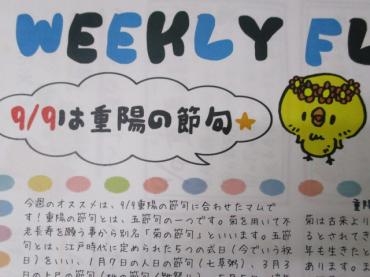 WEEKLY FL
9/9は重陽の節句
今週のオススメは、9/9重陽の節句に合わせたマムで
す！重陽の節句とは、五節句の一つです。菊を用いて不
老長寿を願う事から別名「菊の節句」といいます。五節
句とは、江戸時代に定められた5つの式日（今でいう祝
日）をいい、1月7日の人日の節句（七草粥）、3月3
重陽
菊は古来より
るとされてき
年も生きたと
います。ま